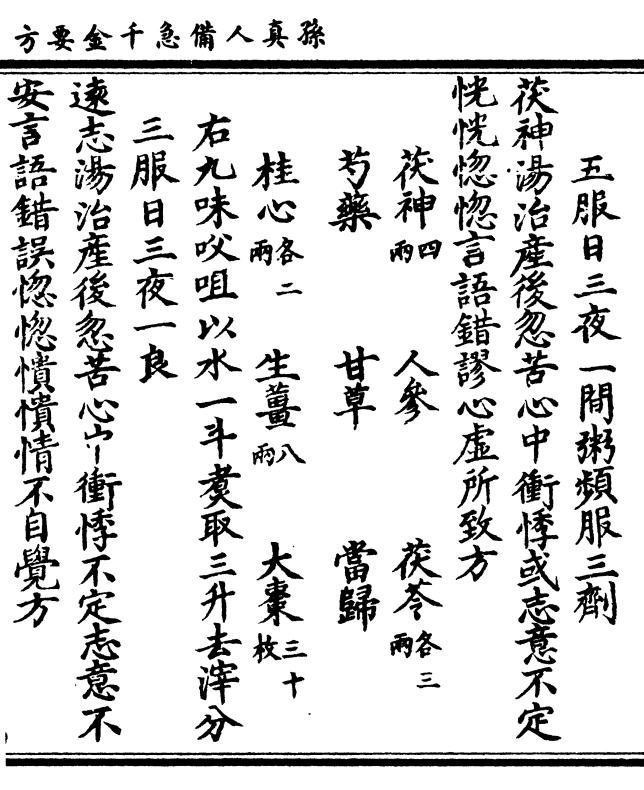 孫真人備急千金要方
五服日三夜一間粥頻服三劑
茯神湯治產後忽苦心中衝悸或志意不定
恍恍惚惚言語錯謬心虛所致方
茯神四兩 人參 茯苓各三兩
芍藥 甘草 當歸
桂心各二兩 生薑八兩 大棗三十枚
右九味㕮咀以水一斗煑取三升去滓分
三服日三夜一良
遠志湯治產後忽苦心中衝悸不定志意不
安言語錯誤惚惚憒憒情不自覺方